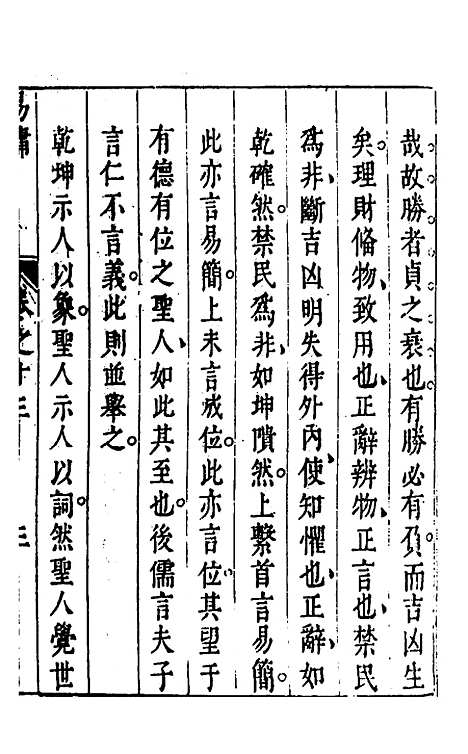 哉。故勝者貞之衰也。有勝必有負。而吉凶生
矣。理財俻物、致用也、正辭辨物、正言也、禁民
爲非、斷吉凶明失得外內、使知懼也、正辭、如
乾確然。禁民爲非、如坤隤然。上繫首言易簡。
此亦言易簡。上末言成位。此亦言位、其望于
有德有位之聖人、如此其至也。後儒言夫子
言仁不言義。此則並舉之。
乾坤示人以象。聖人示人以詞。然聖人覺世
易
卷之十三
三